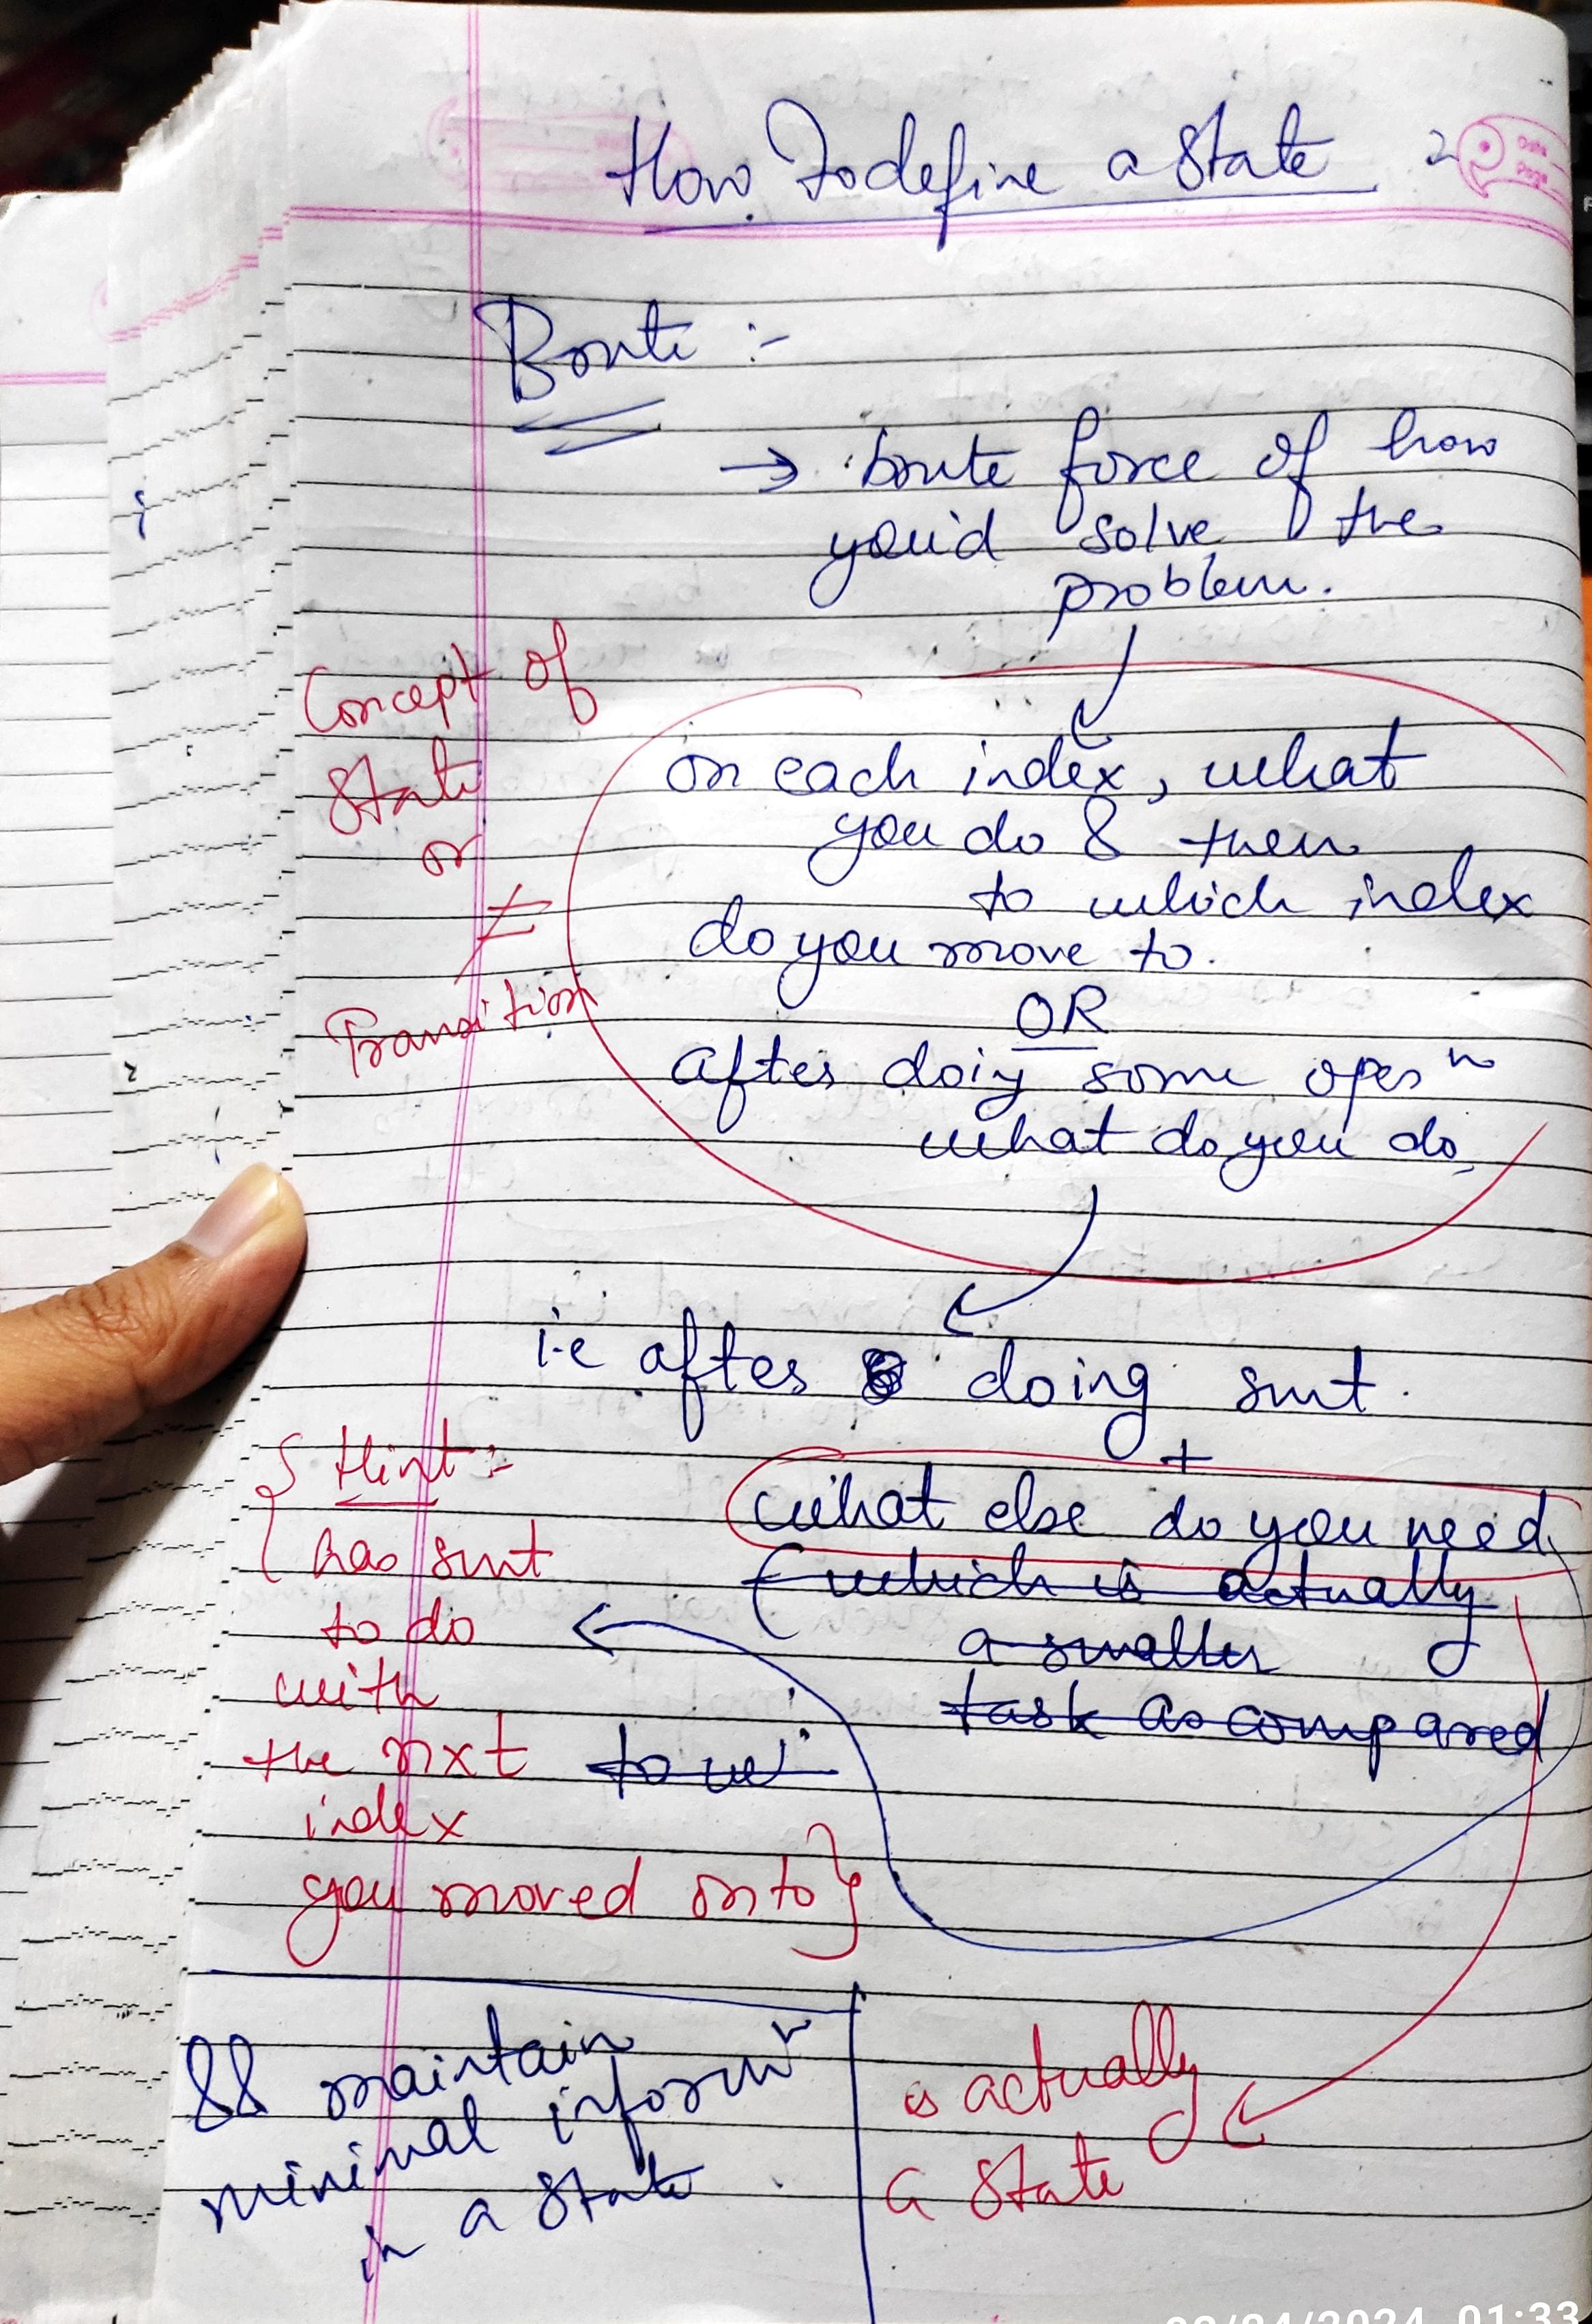 How To define a State
Brute :-
→ brute force of how
you'd solve the
problem.
Concept of
State
or
≠
Transition
on each index, what
you do & then
to which index
do you move to.
OR
after doing some oper n
what do you do,
i.e after doing smt.
+
what else do you need
(which is actually
a smaller
task as compared
{ Hint :-
has smt
to do
with
the nxt
index
you moved onto }
is actually
a State
&& maintain
minimal inform n
in a state
Date
Page